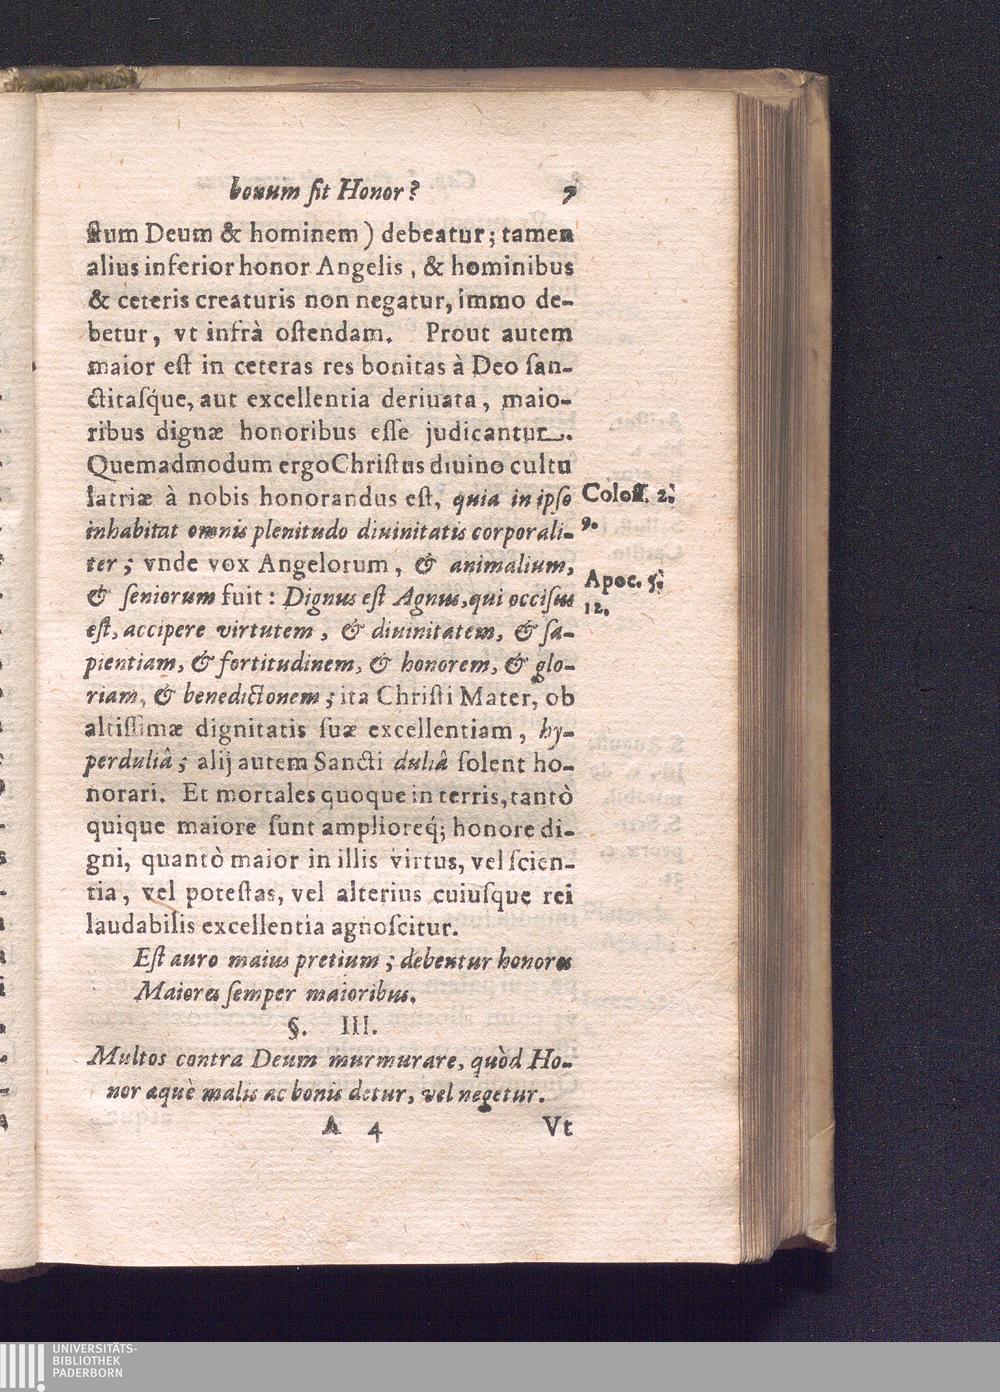 bonum ſit Honor? 7
ſtum Deum & hominem) debeatur; tamen
alius inferior honor Angelis, & hominibus
& ceteris creaturis non negatur, immo de-
betur, vt infrà oſtendam. Prout autem
maior eſt in ceteras res bonitas à Deo ſan-
ctitaſq́ue, aut excellentia deriuata, maio-
ribus dignæ honoribus eſſe judicantur.
Quemadmodum ergo Chriſtus diuino cultu
latriæ à nobis honorandus eſt, quia in ipſo
Coloſſ. 2.
inhabitat omnis plenitudo diuinitatis corporali-
9.
ter; vnde vox Angelorum, & animalium,
Apoc. 5.
& ſeniorum fuit: Dignus eſt Agnus, qui occiſus
12.
eſt, accipere virtutem, & diuinitatem, & ſa-
pientiam, & fortitudinem, & honorem, & glo-
riam, & benedictionem; ita Chriſti Mater, ob
altiſſimæ dignitatis ſuæ excellentiam, hy-
perduliâ; alij autem Sancti duliâ ſolent ho-
norari. Et mortales quoque in terris, tantò
quique maiore ſunt amplioreq́; honore di-
gni, quantò maior in illis virtus, vel ſcien-
tia, vel poteſtas, vel alterius cuiuſque rei
laudabilis excellentia agnoſcitur.
Eſt auro maius pretium; debentur honores
Maiores ſemper maioribus.
§. III.
Multos contra Deum murmurare, quòd Ho-
nor æquè malis ac bonis detur, vel negetur.
A 4 Vt
UNIVERSITÄTS-
BIBLIOTHEK
PADERBORN